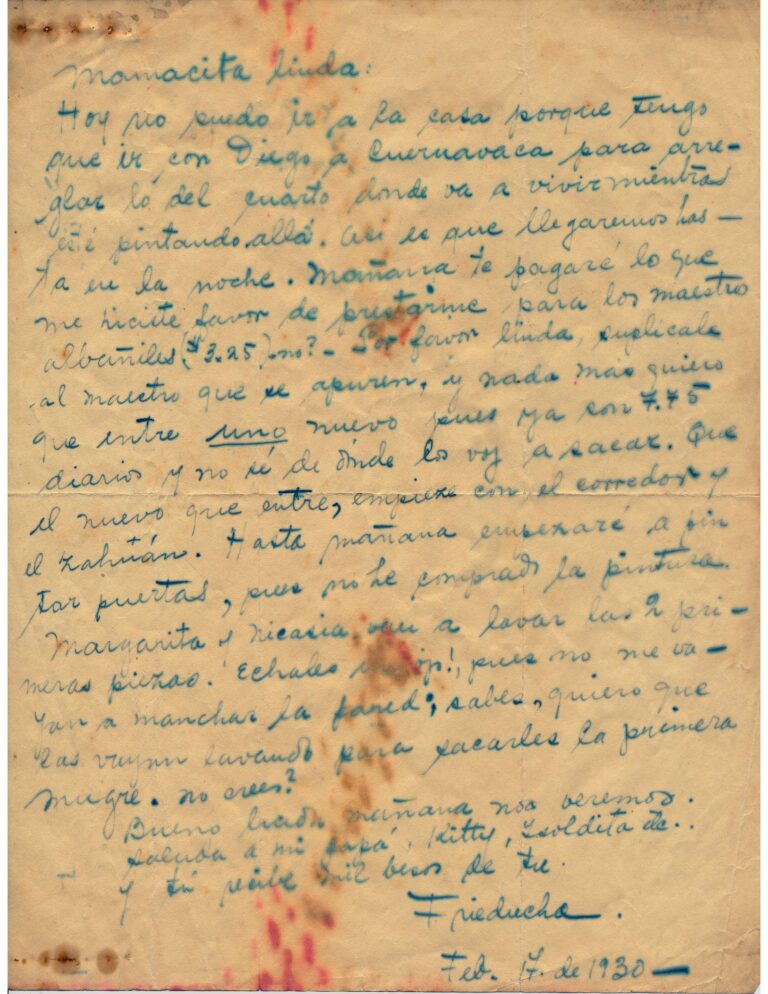 Mamacita linda:
Hoy no puedo ir a la casa porque tengo
que ir con Diego a Cuernavaca para arre-
glar lo del cuarto donde va a vivir mientras
esté pintando allá. Asi es que llegaremos has-
ta en la noche. Mañana te pagaré lo que
me hiciste favor de prestarme para los maestro
albañiles ($3.25) no? - Por favor linda, suplicale
al maestro que se apuren, y nada mas quiero
que entre uno nuevo pues ya son 7.75
diarios y no sé de dónde los voy a sacar. Que
el nuevo que entre, empieze con el corredor y
el zahuán. Hasta mañana empezaré a pin
tar puertas, pues no he comprado la pintura.
Margarita y Nicasia van a lavar las 2 pri-
meras piezas. Echales un ojo!, pues no me va-
yan a manchar la pared; sabes, quiero que
las vayan lavando para sacarles la primera
mugre. no crees?
Bueno mañana nos veremos.
Saluda a mi papá, Kitty, Isoldita etc..
y tú recibe mil besos de tu.
Frieducha.
Feb. 17. de 1930 -